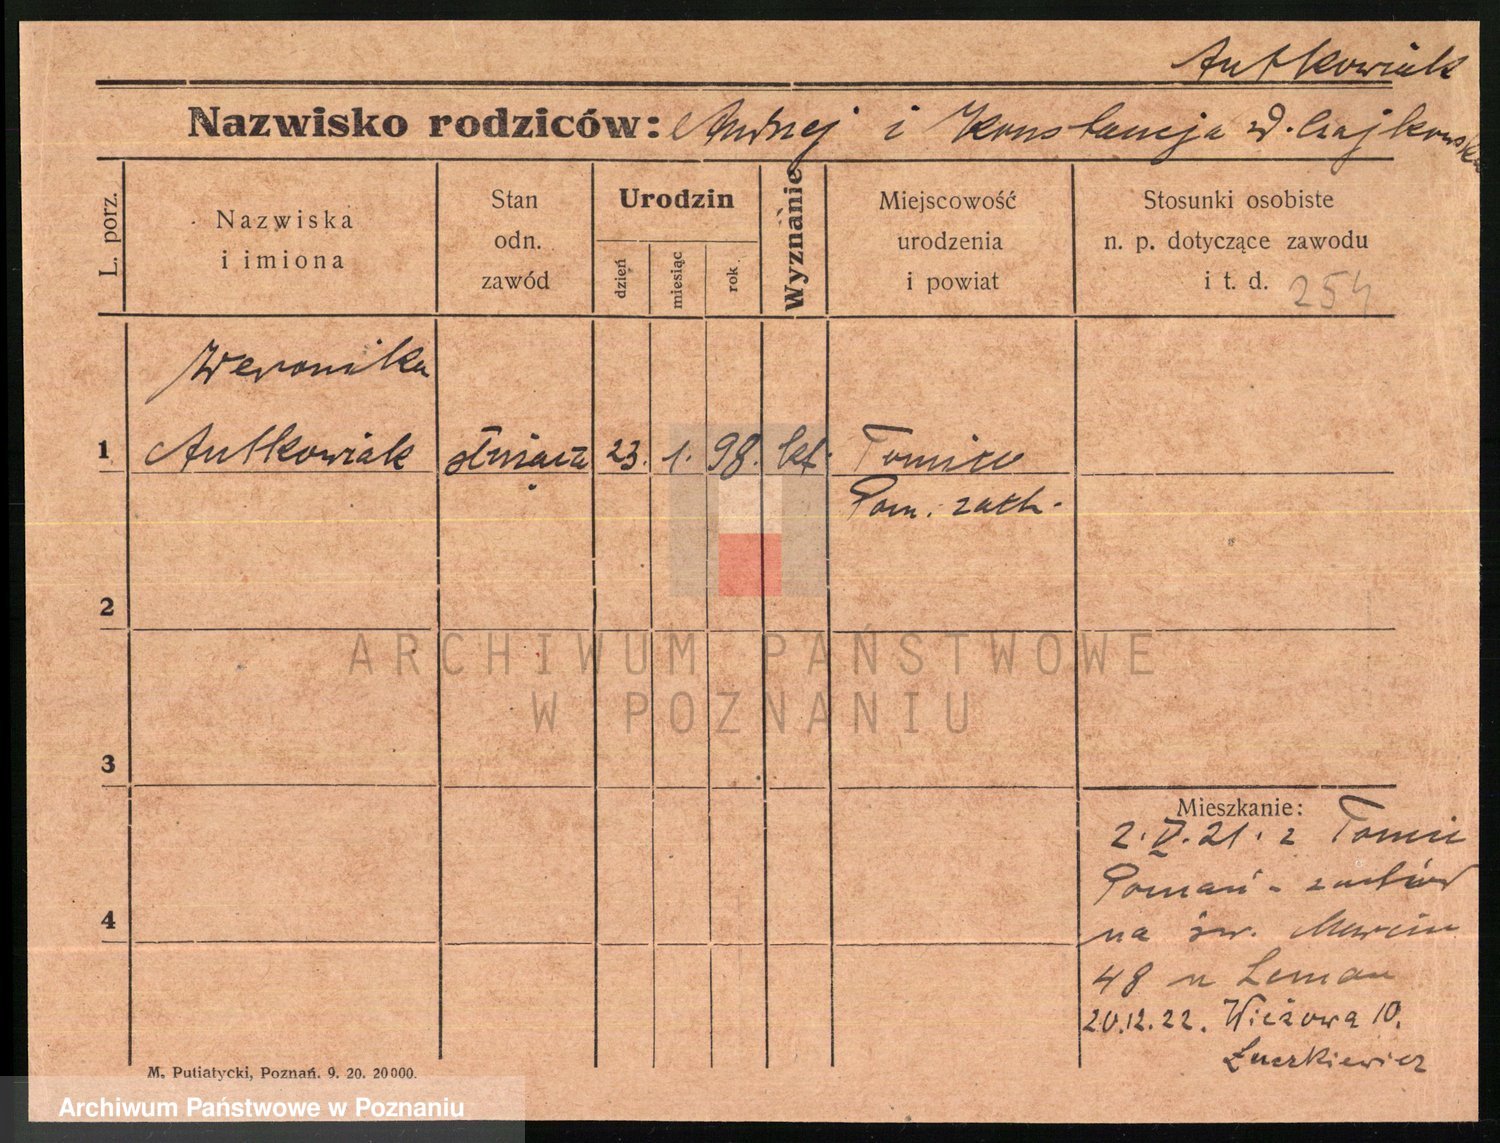 Antkowiak
Nazwisko rodziców: Andrzej i Konstancja z d. Czajkowska
L. porz.
Nazwiska
i imiona
Stan
odn.
zawód
Urodzin
dzień
miesiąc
rok
Wyznanie
Miejscowość
urodzenia
i powiat
Stosunki osobiste
n. p. dotyczące zawodu
i t. d. 254
Weronika
1 Antkowiak służąca 23. 1. 98. kat. Tomice
Pozn. zach.
2
ARCHIWUM PAŃSTWOWE
W POZNANIU
3
Mieszkanie:
2. V. 21. z Tomic
Poznań - zachód
na św. Marcin
48 u Leman
4
20.12.22. Wieżowa 10.
Łuczkiewicz
M. Putiatycki, Poznań. 9. 20. 20000.
Archiwum Państwowe w Poznaniu